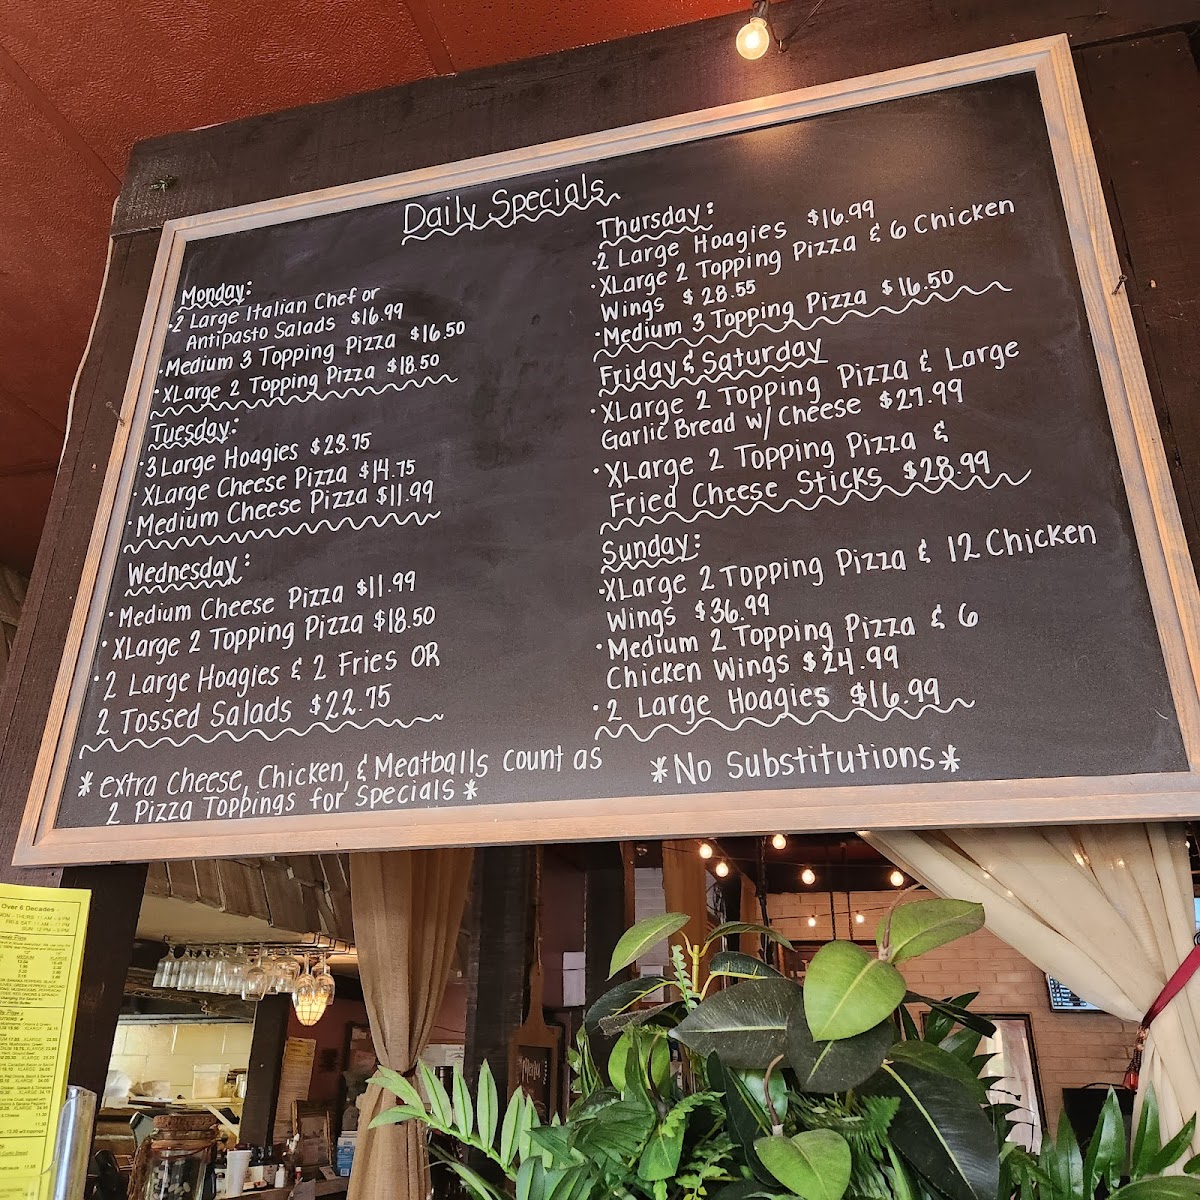 Daily Specials
Monday:
•2 Large Italian Chef or
Antipasto Salads $16.99
•Medium 3 Topping Pizza $16.50
•XLarge 2 Topping Pizza $18.50
Tuesday:
•3 Large Hoagies $23.75
•XLarge Cheese Pizza $14.75
•Medium Cheese Pizza $11.99
Wednesday:
•Medium Cheese Pizza $11.99
•XLarge 2 Topping Pizza $18.50
•2 Large Hoagies & 2 Fries OR
2 Tossed Salads $22.75
*extra cheese, Chicken, & Meatballs count as
2 Pizza Toppings for specials*
Thursday:
•2 Large Hoagies $16.99
•XLarge 2 Topping Pizza & 6 Chicken
Wings $28.55
•Medium 3 Topping Pizza $16.50
Friday & Saturday
•XLarge 2 Topping Pizza & Large
Garlic Bread w/ Cheese $27.99
•XLarge 2 Topping Pizza &
Fried Cheese Sticks $28.99
Sunday:
•XLarge 2 Topping Pizza & 12 Chicken
Wings $36.99
•Medium 2 Topping Pizza & 6
Chicken Wings $24.99
•2 Large Hoagies $16.99
*No Substitutions*
Over 6 Decades
MEDIUM XLARGE
Menu